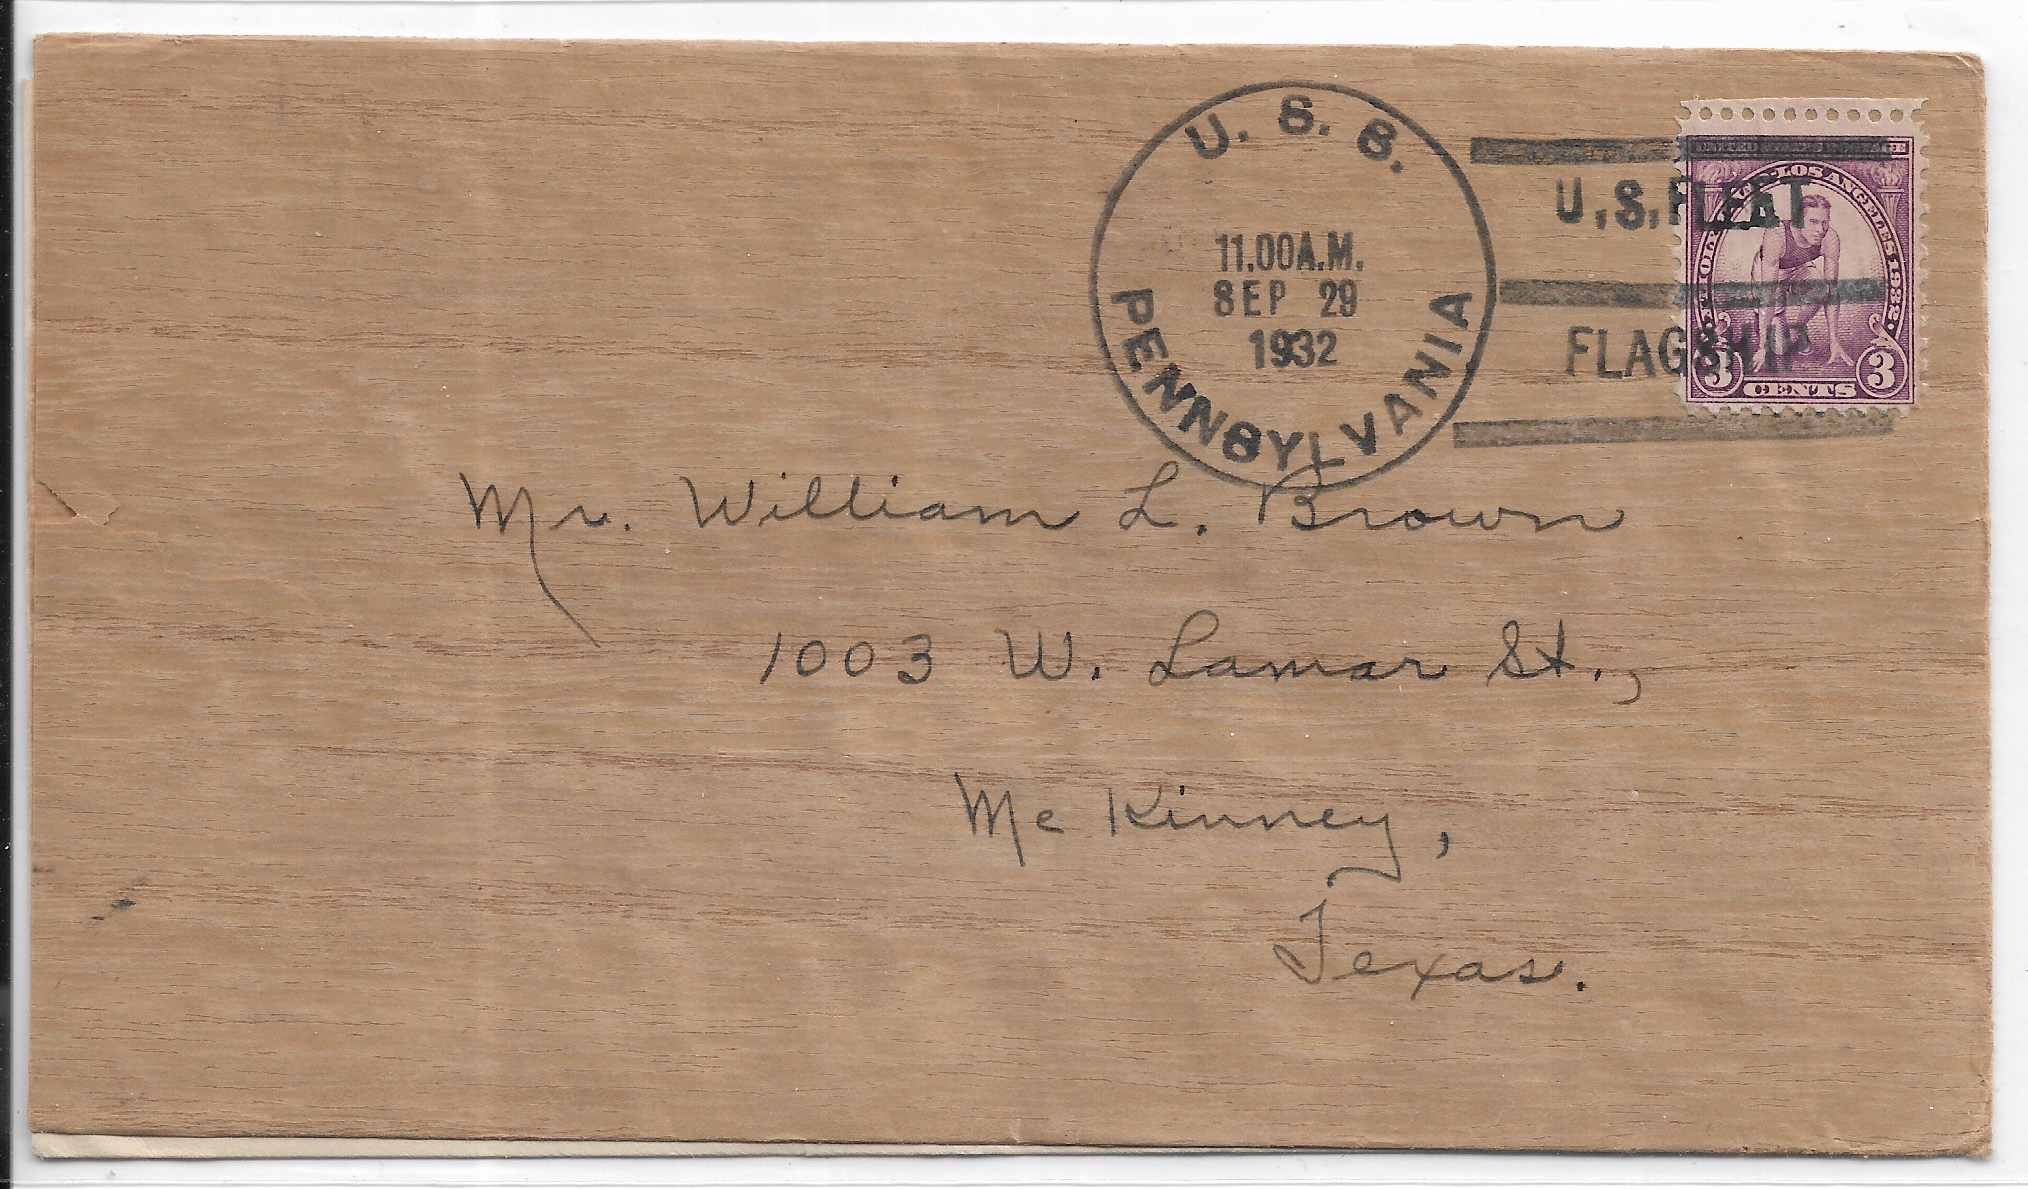 U. S. S.
PENNSYLVANIA
11.00A.M.
SEP 29
1932
U.S.FLEET
FLAGSHIP
UNITED STATES POSTAGE
LOS ANGELES 1932
3 CENTS 3
Mr. William L. Brown
1003 W. Lamar St.,
Mc Kinney,
Texas.